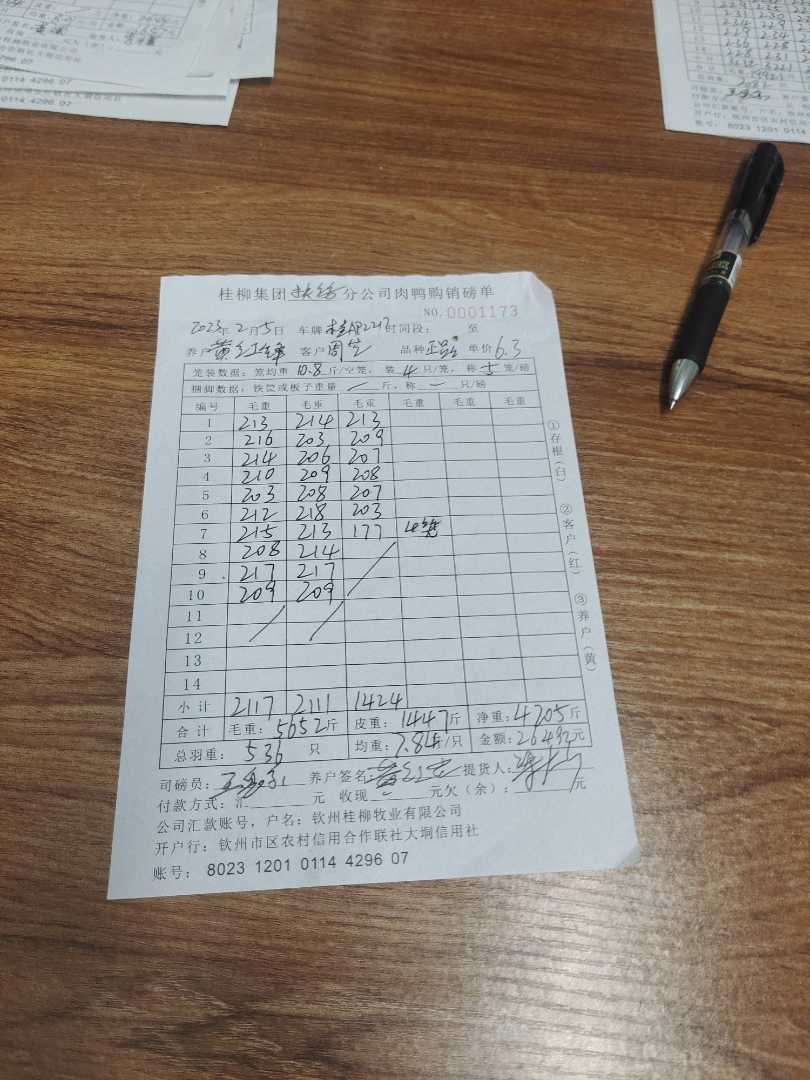 桂柳集团扶绥分公司肉鸭购销磅单
NO.0001173
2023年2月5日 车牌 时间段: 至
养户 客户 周 品种 单价 6.3
笼装数据: 笼均重 10.8 斤/空笼, 装 4 只/笼, 称 5 笼/磅
捆脚数据: 铁筐或板子重量 / 斤, 称 — 只/磅
编号 毛重 毛重 毛重 毛重 毛重 毛重
1 213 214 213
2 216 203 209
3 214 206 207
4 210 209 208
5 203 208 207
6 212 218 203
7 215 213 177 4笼
8 208 214
9 217 217
10 209 209
11
12
13
14
小计 2117 2111 1424
合计 毛重: 5652斤 皮重: 1447斤 净重: 4205斤
总羽重: 536 只 均重: 7.84斤/只 金额: 26492元
司磅员: 养户签名: 提货人:
付款方式: 汇 元 收现 元欠(余): 元
公司汇款账号, 户名: 钦州桂柳牧业有限公司
开户行: 钦州市区农村信用合作联社大垌信用社
账号: 8023 1201 0114 4296 07
①存根(白)
②客户(红)
③养户(黄)
0114 4296 07
账号: 8023 1201 0114